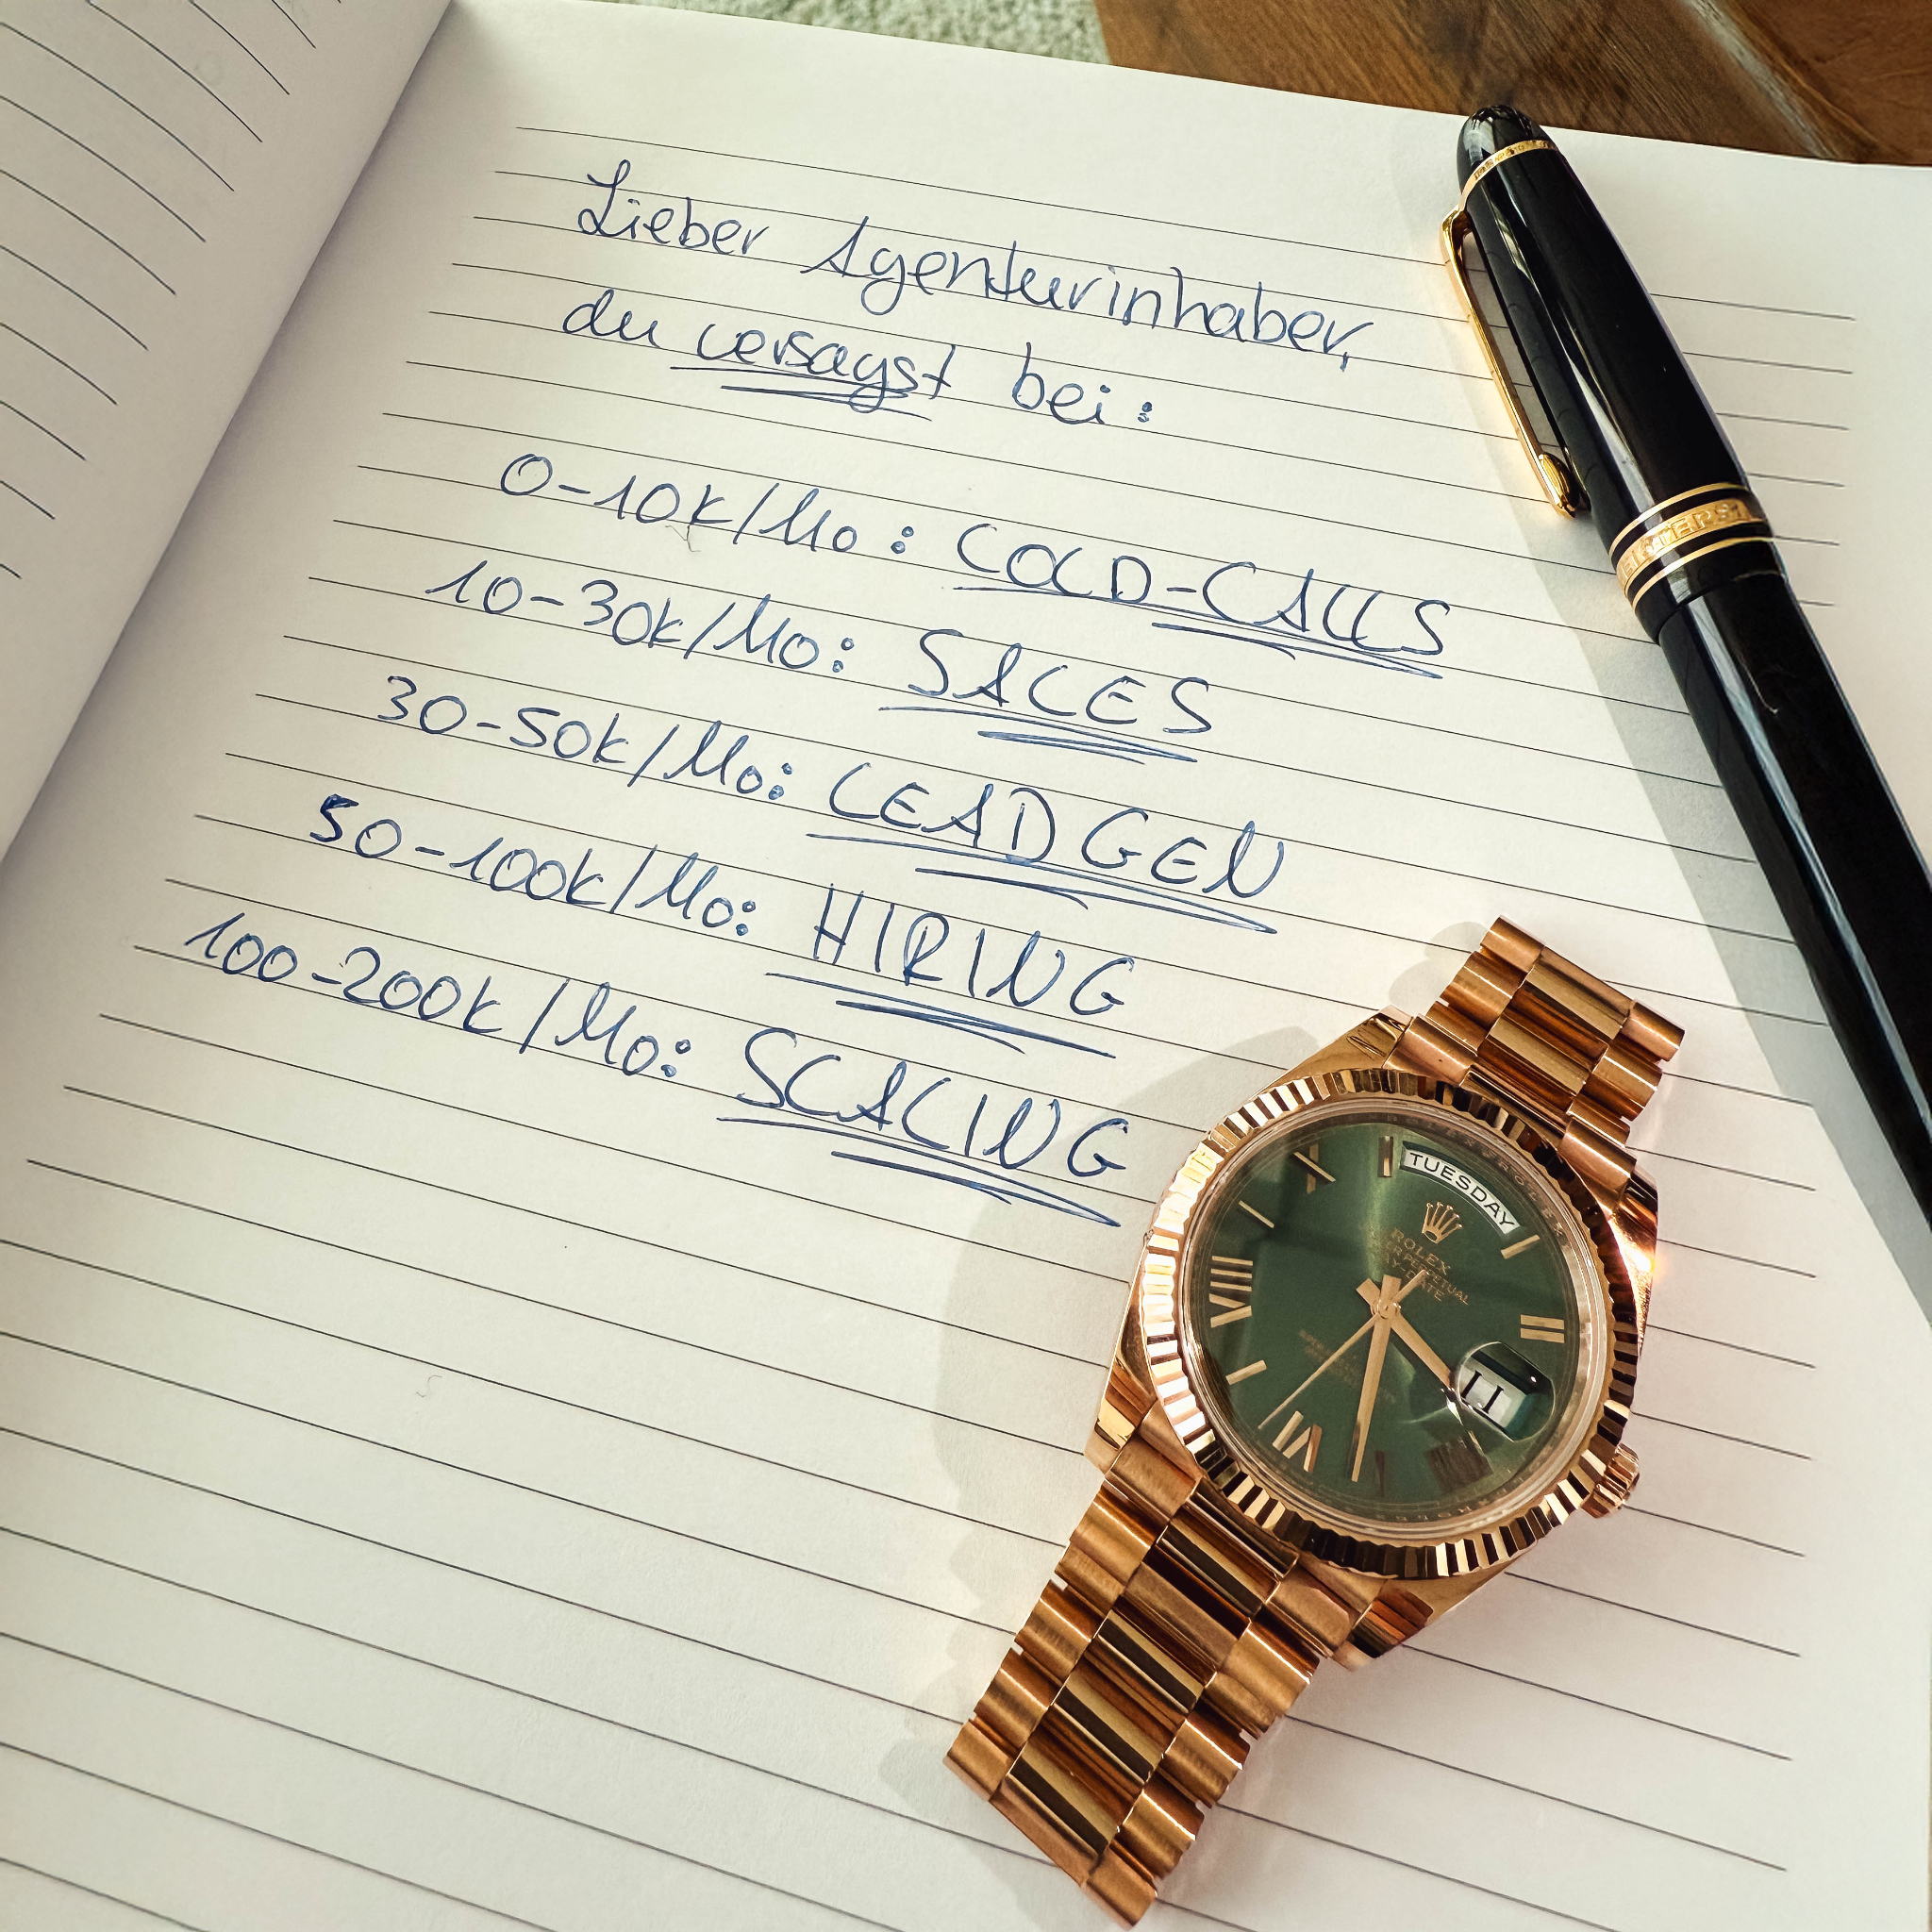 Lieber Agenturinhaber,
du versagst bei:
0-10k/Mo: COLD-CALLS
10-30k/Mo: SALES
30-50k/Mo: LEAD GEN
50-100k/Mo: HIRING
100-200k/Mo: SCALING
TUESDAY
ROLEX
PERPETUAL
DAY-DATE